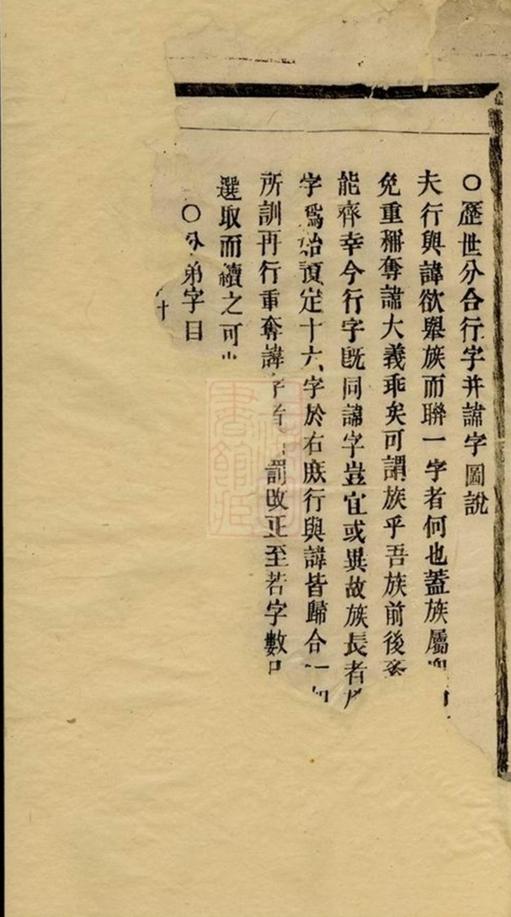 ○歷世分合行字并諱字圖說
夫行與諱欲舉族而聯一字者何也蓋族屬
免重稱奪諱大義乖矣可謂族乎吾族前後
能齊幸今行字既同諱字豈宜或異故族長者
字爲始預定十六字於右庶行與諱皆歸合一如
所訓再行重奪諱字者罰改正至若字數
選取而續之可
○弟字目
十